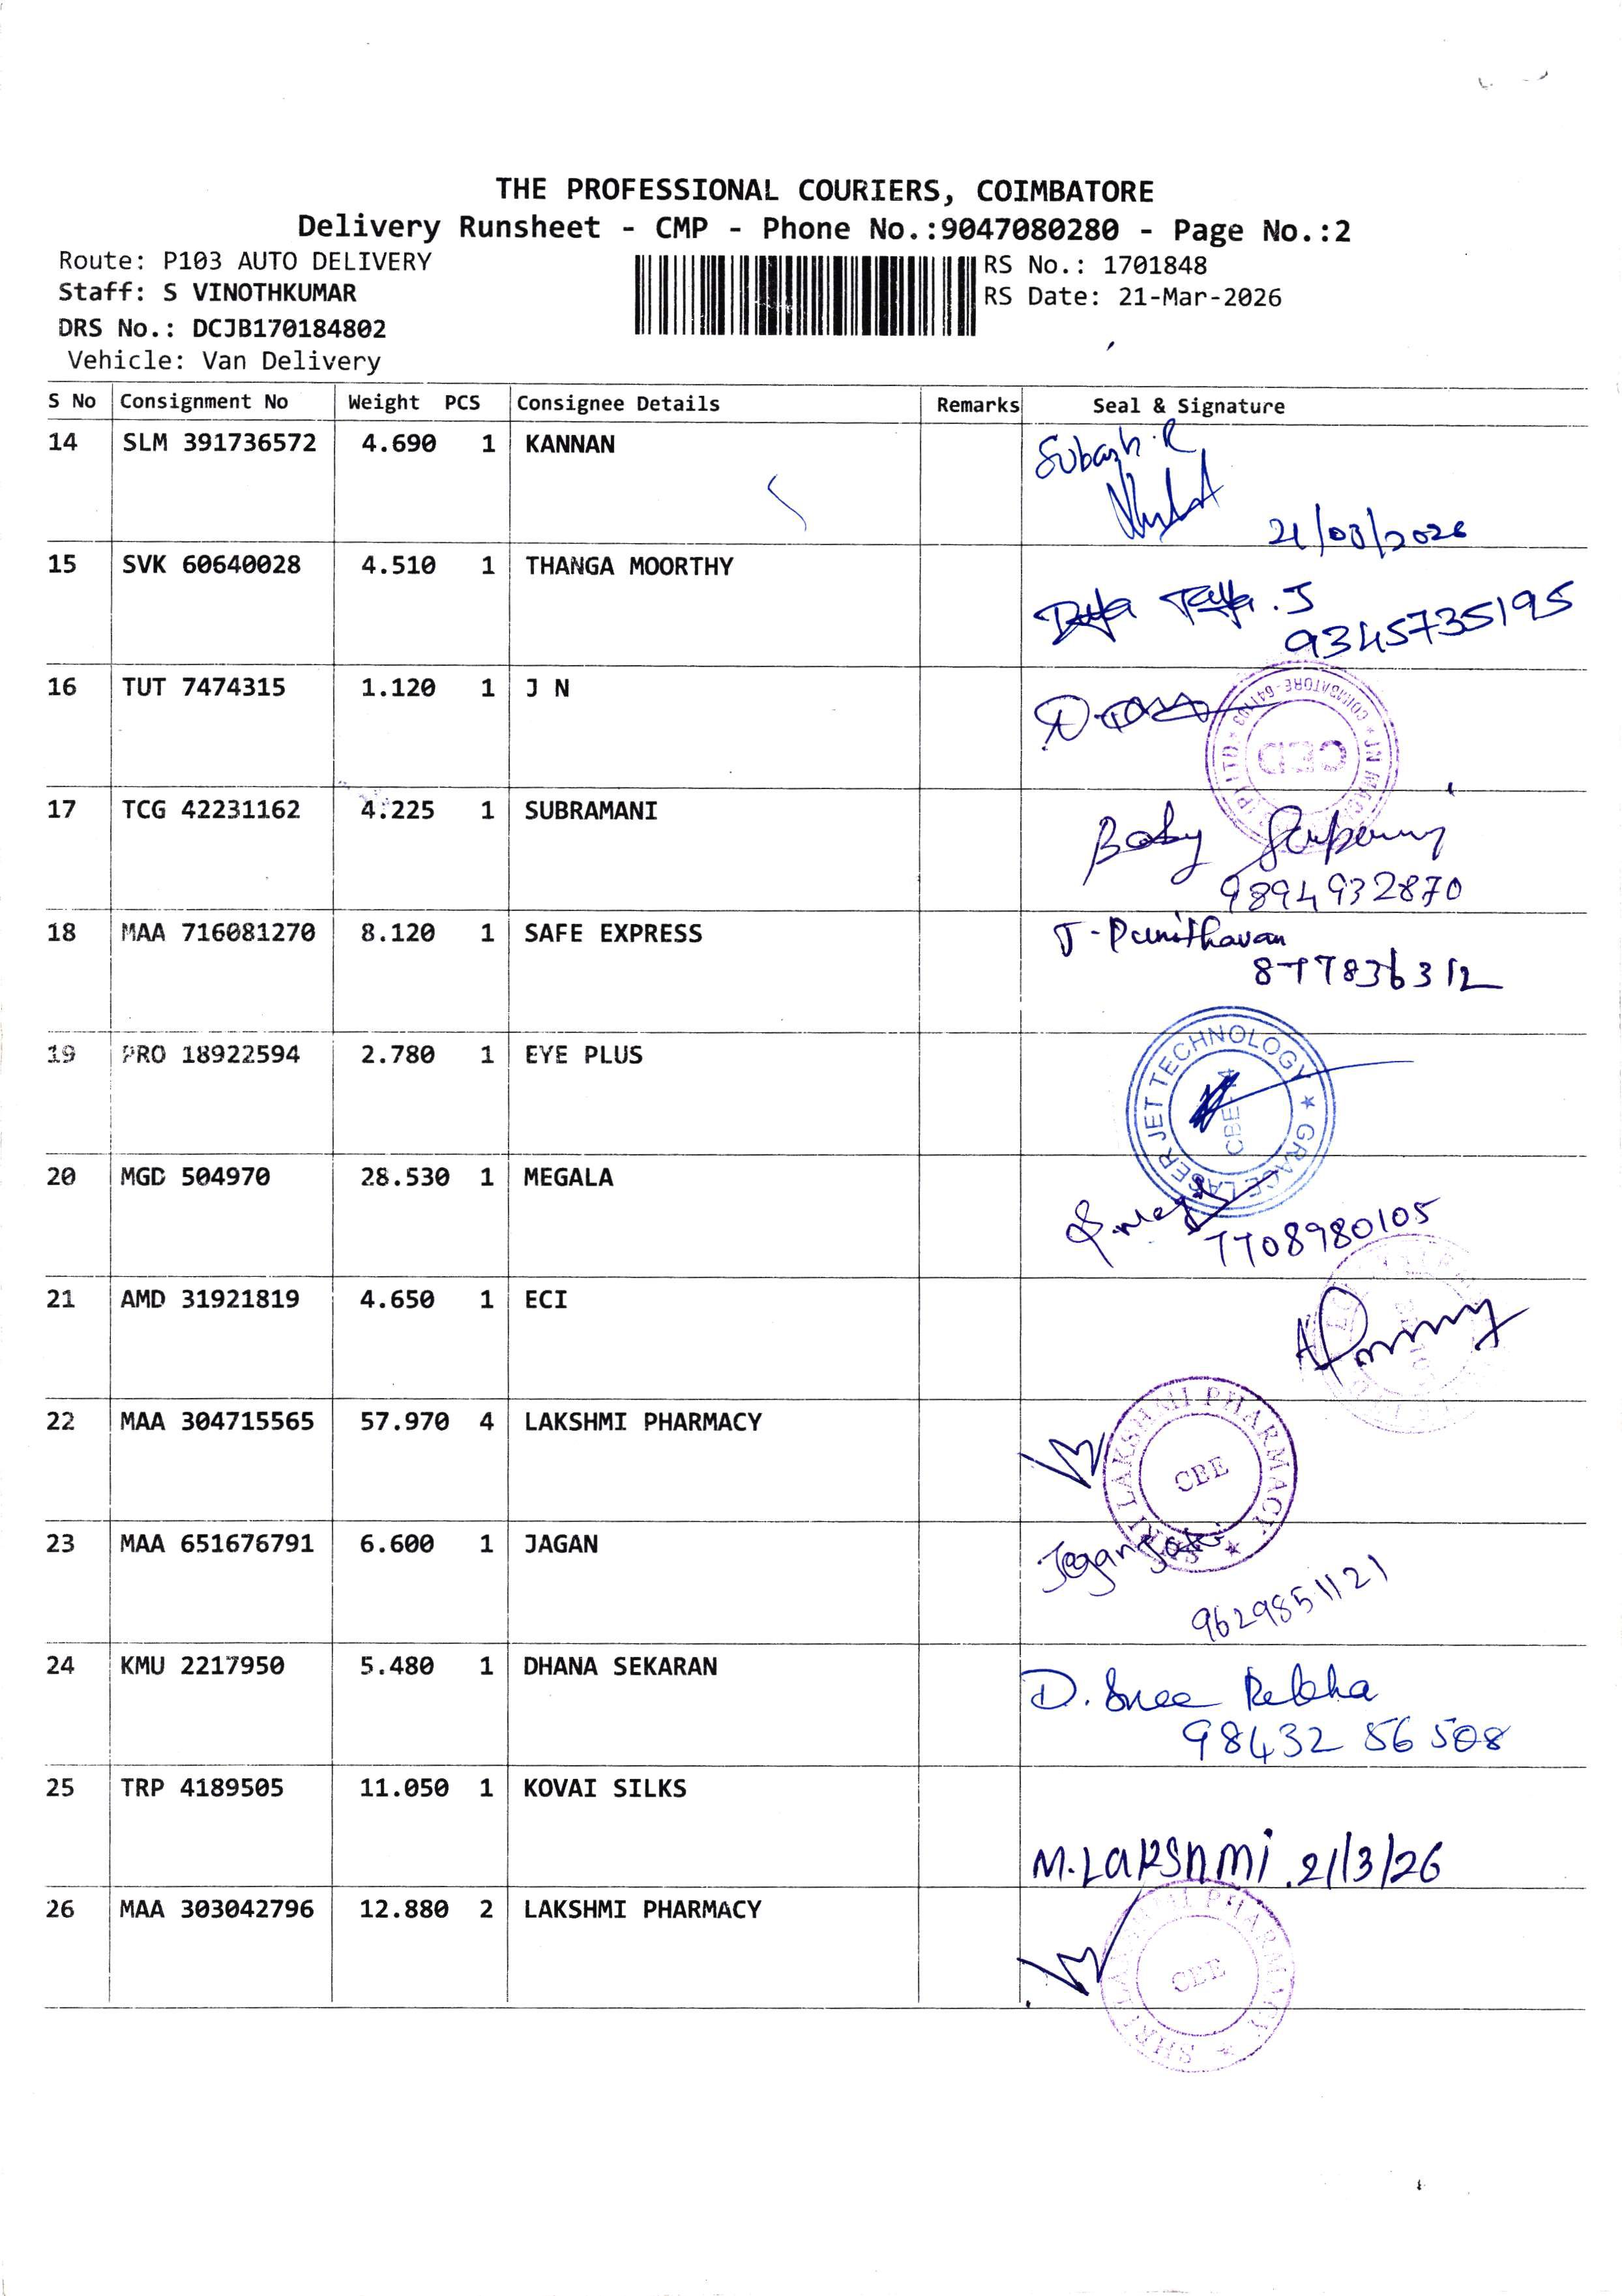 THE PROFESSIONAL COURIERS, COIMBATORE
Delivery Runsheet - CMP - Phone No.:9047080280 - Page No.:2
Route: P103 AUTO DELIVERY
Staff: S VINOTHKUMAR
DRS No.: DCJB170184802
Vehicle: Van Delivery
RS No.: 1701848
RS Date: 21-Mar-2026
S No Consignment No Weight PCS Consignee Details Remarks Seal & Signature
14 SLM 391736572 4.690 1 KANNAN
Subash.R
21/03/2026
15 SVK 60640028 4.510 1 THANGA MOORTHY
9345735195
16 TUT 7474315 1.120 1 J N
17 TCG 42231162 4.225 1 SUBRAMANI
Baby
9894932870
18 MAA 716081270 8.120 1 SAFE EXPRESS
J-Punithavan
877836312
19 PRO 18922594 2.780 1 EYE PLUS
GRACE LASER JET TECHNOLOGY
20 MGD 504970 28.530 1 MEGALA
7708980105
21 AMD 31921819 4.650 1 ECI
22 MAA 304715565 57.970 4 LAKSHMI PHARMACY
SHRI LAKSHMI PHARMACY
CBE
23 MAA 651676791 6.600 1 JAGAN
Jegan
9629851121
24 KMU 2217950 5.480 1 DHANA SEKARAN
D. Sree Rekha
98432 56508
25 TRP 4189505 11.050 1 KOVAI SILKS
M.LAKSHMI.21/3/26
26 MAA 303042796 12.880 2 LAKSHMI PHARMACY
SHRI LAKSHMI PHARMACY
CBE